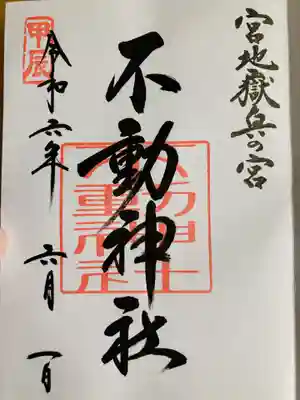 宮地嶽兵の宮
不動神社
甲辰
令和六年 六月 一日